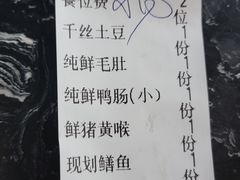 餐位费 2位
千丝土豆 1份
纯鲜毛肚 1份
纯鲜鸭肠(小) 1份
鲜猪黄喉 1份
现划鳝鱼 1份